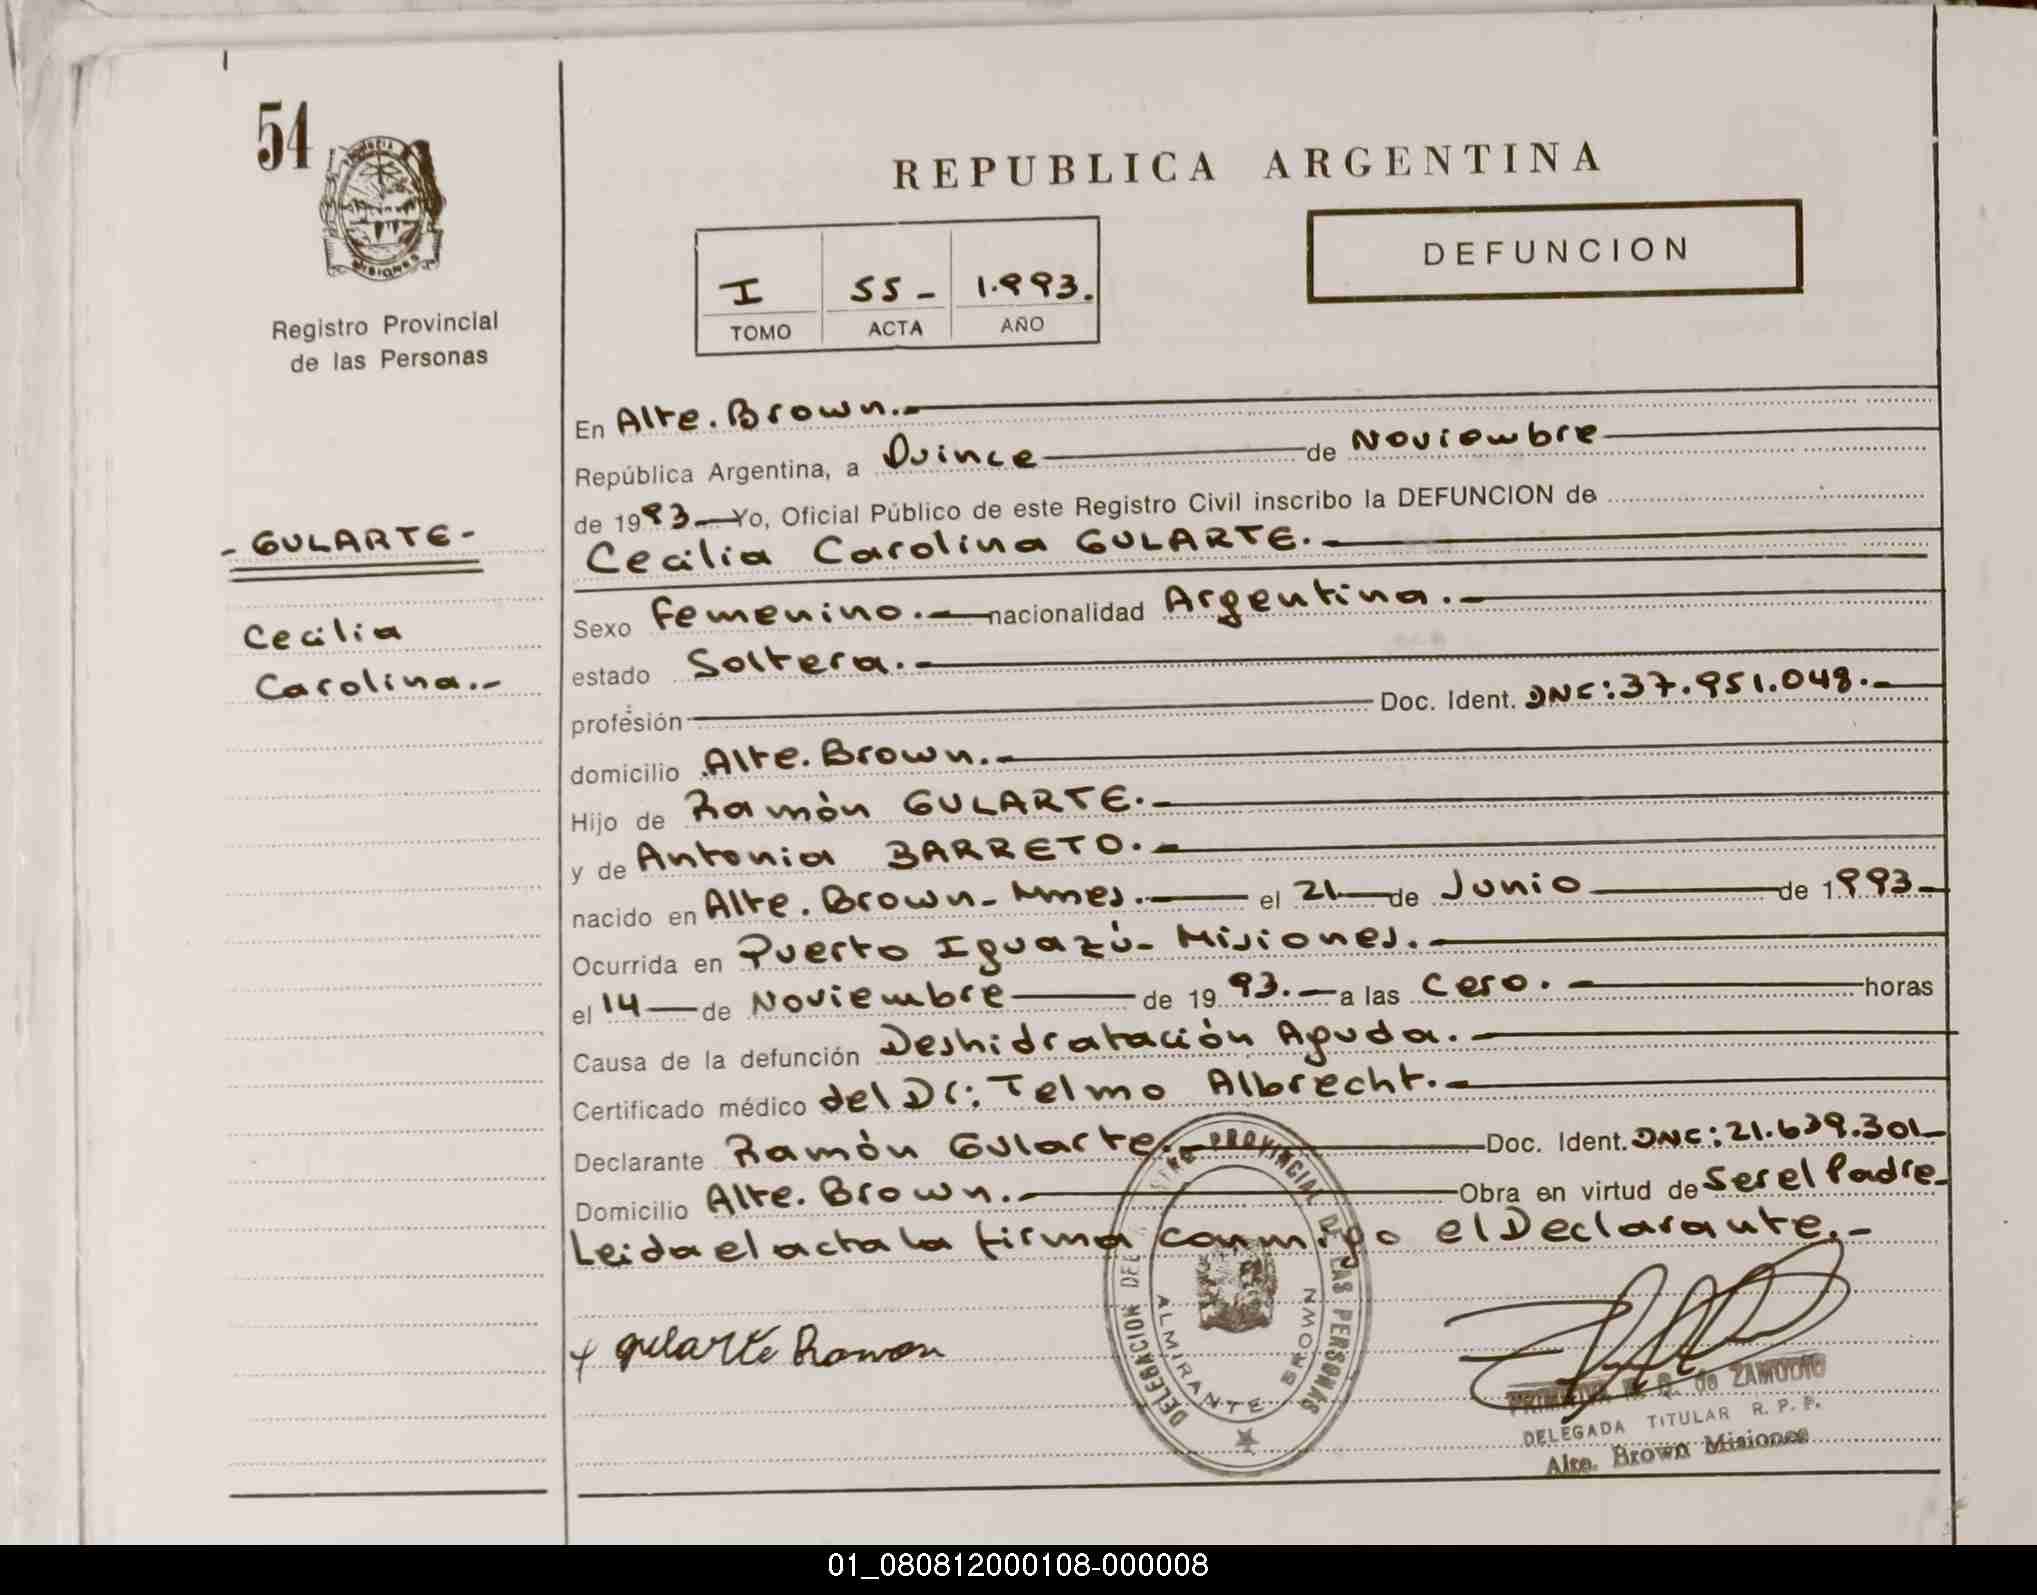 54
MISIONES
Registro Provincial
de las Personas
- GULARTE -
Cecilia
Carolina.-
REPUBLICA ARGENTINA
DEFUNCION
I 55- 1.993.
TOMO ACTA AÑO
En Alte. Brown.-
República Argentina, a Quince de Noviembre
de 1993 Yo, Oficial Público de este Registro Civil inscribo la DEFUNCION de
Cecilia Carolina GULARTE.-
Sexo Femenino.- nacionalidad Argentina.-
estado Soltera.-
profesión Doc. Ident. DNC: 37.951.048.-
domicilio Alte. Brown.-
Hijo de Ramón GULARTE.-
y de Antonia BARRETO.-
nacido en Alte. Brown- Mnes.- el 21 de Junio de 1993.-
Ocurrida en Puerto Iguazú- Misiones.-
el 14 de Noviembre de 1993.- a las Cero.- horas
Causa de la defunción Deshidratación Aguda.-
Certificado médico del Dr: Telmo Albrecht.-
Declarante Ramón Gularte.- Doc. Ident. DNC: 21.639.301-
Domicilio Alte. Brown.- Obra en virtud de Ser el Padre-
Leida el acta la firma conmigo el Declarante.-
Gularte Ramon
DELEGACION DEL PROVINCIAL DE LAS PERSONAS
ALMIRANTE BROWN
de ZAMUDIO
DELEGADA TITULAR R. P. P.
Alte. Brown Misiones
01_080812000108-000008